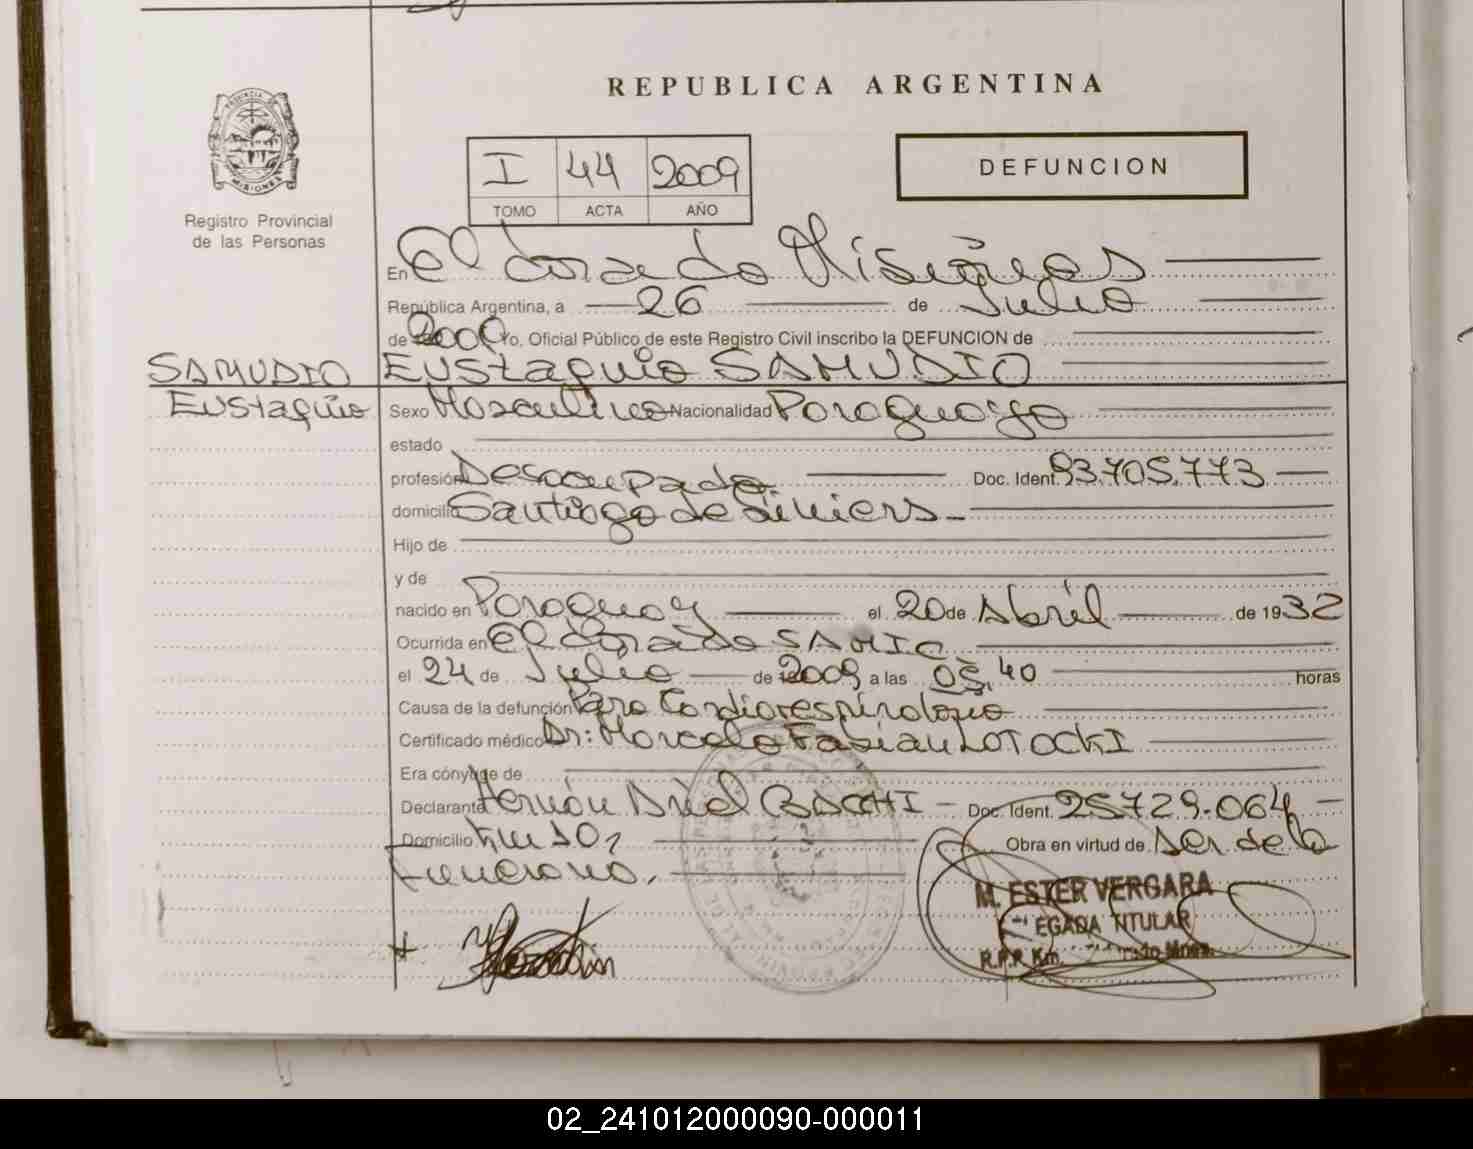 REPUBLICA ARGENTINA
PROVINCIA DE
MISIONES
Registro Provincial
de las Personas
I 44 2009
TOMO ACTA AÑO
DEFUNCION
En Eldorado Misiones
República Argentina, a 26 de Julio
de 2009 Yo, Oficial Público de este Registro Civil inscribo la DEFUNCION de
SAMUDIO Eustaquio SAMUDIO
Eustaquio Sexo Masculino Nacionalidad Paraguayo
estado
profesión Desocupado Doc. Ident. 93.705.773
domicilio Santiago de Liniers
Hijo de
y de
nacido en Paraguay el 20 de Abril de 1932
Ocurrida en Eldorado SAMIC
el 24 de Julio de 2009 a las 05,40 horas
Causa de la defunción Paro Cardiorespiratorio
Certificado médico Dr: Marcelo Fabian LOTOCKI
Era cónyuge de
Declarante Hernán Ariel BACCHI - Doc. Ident. 25.729.064
Domicilio Km 10, Obra en virtud de Ser de la
funeraria.
M. ESTER VERGARA
EGADA TITULAR
R.P.P. Km.
02_241012000090-000011